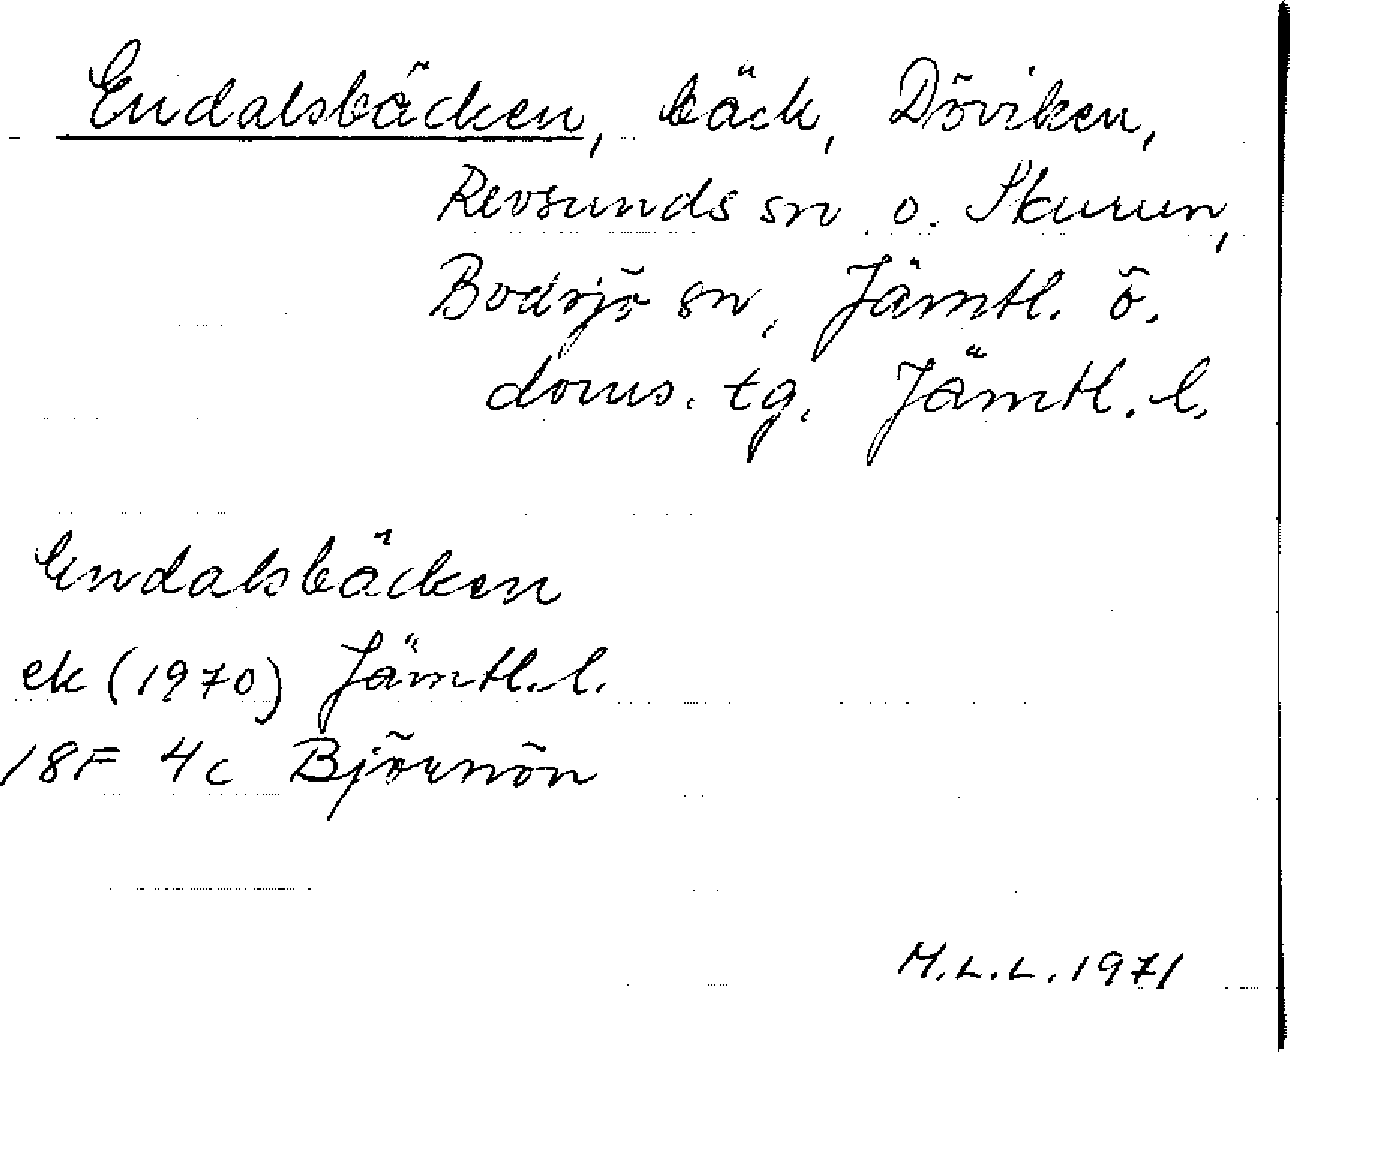 Endalsbäcken, bäck, Döviken,
Revsunds sn o. Skurun,
Bodsjö sn, Jämtl. ö.
doms. tg. Jämtl. l.
Endalsbäcken
ek (1970) Jämtl. l.
18F 4c Björnön
M.L.L. 1971